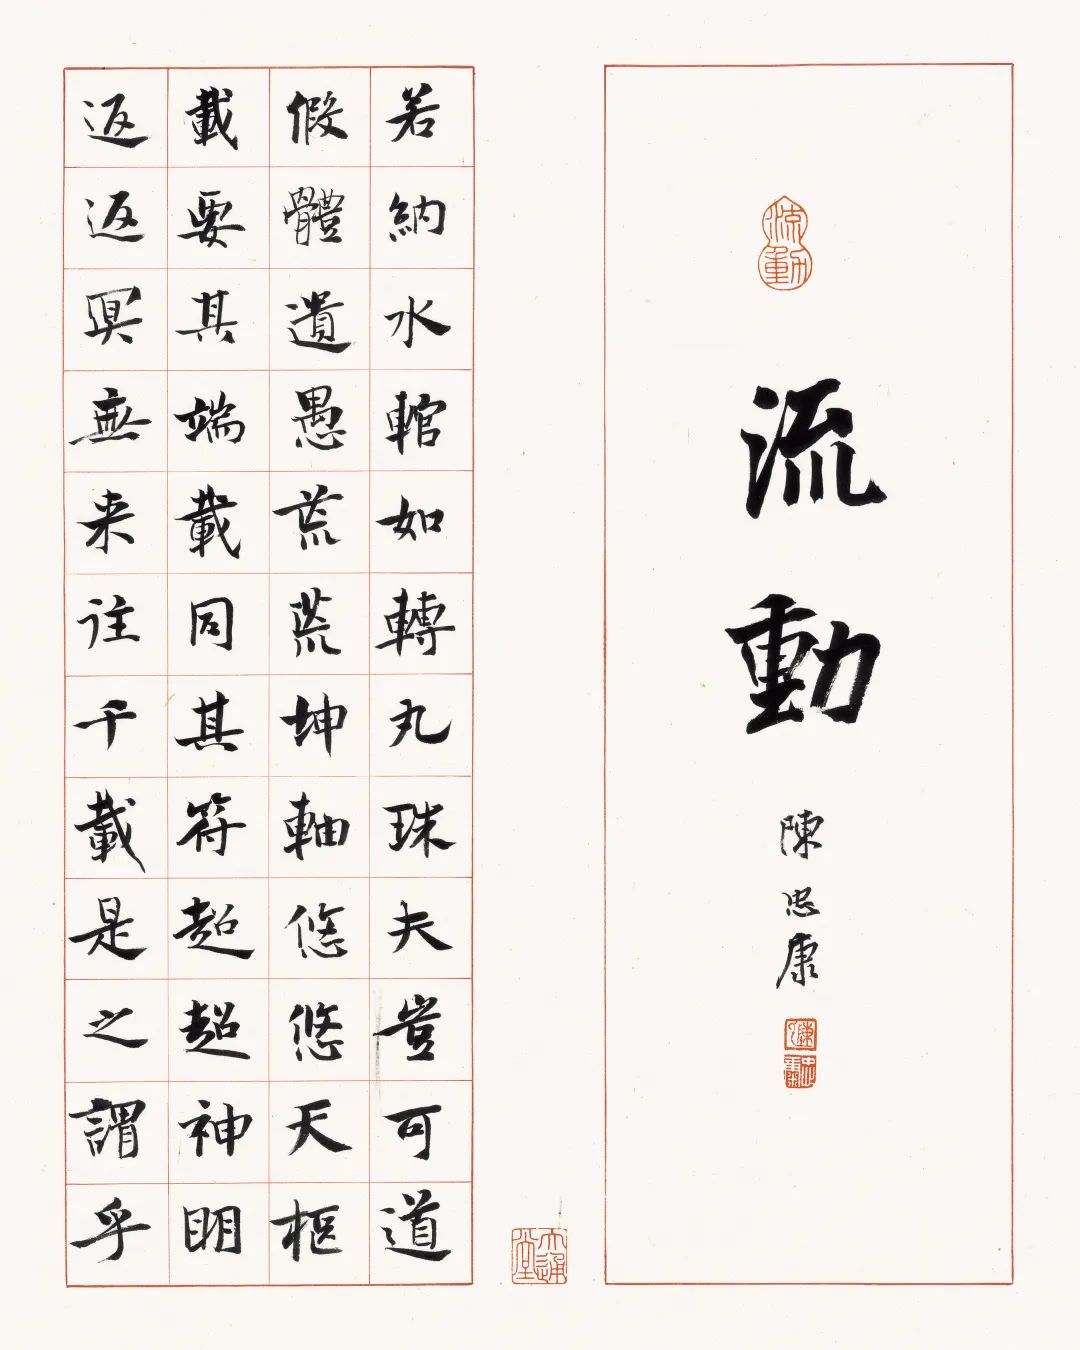 流動
流動
陳忠康
若納水輨如轉丸珠夫豈可道
假體遺愚荒荒坤軸悠悠天枢
載要其端載同其符超超神明
返返冥無来往千載是之謂乎